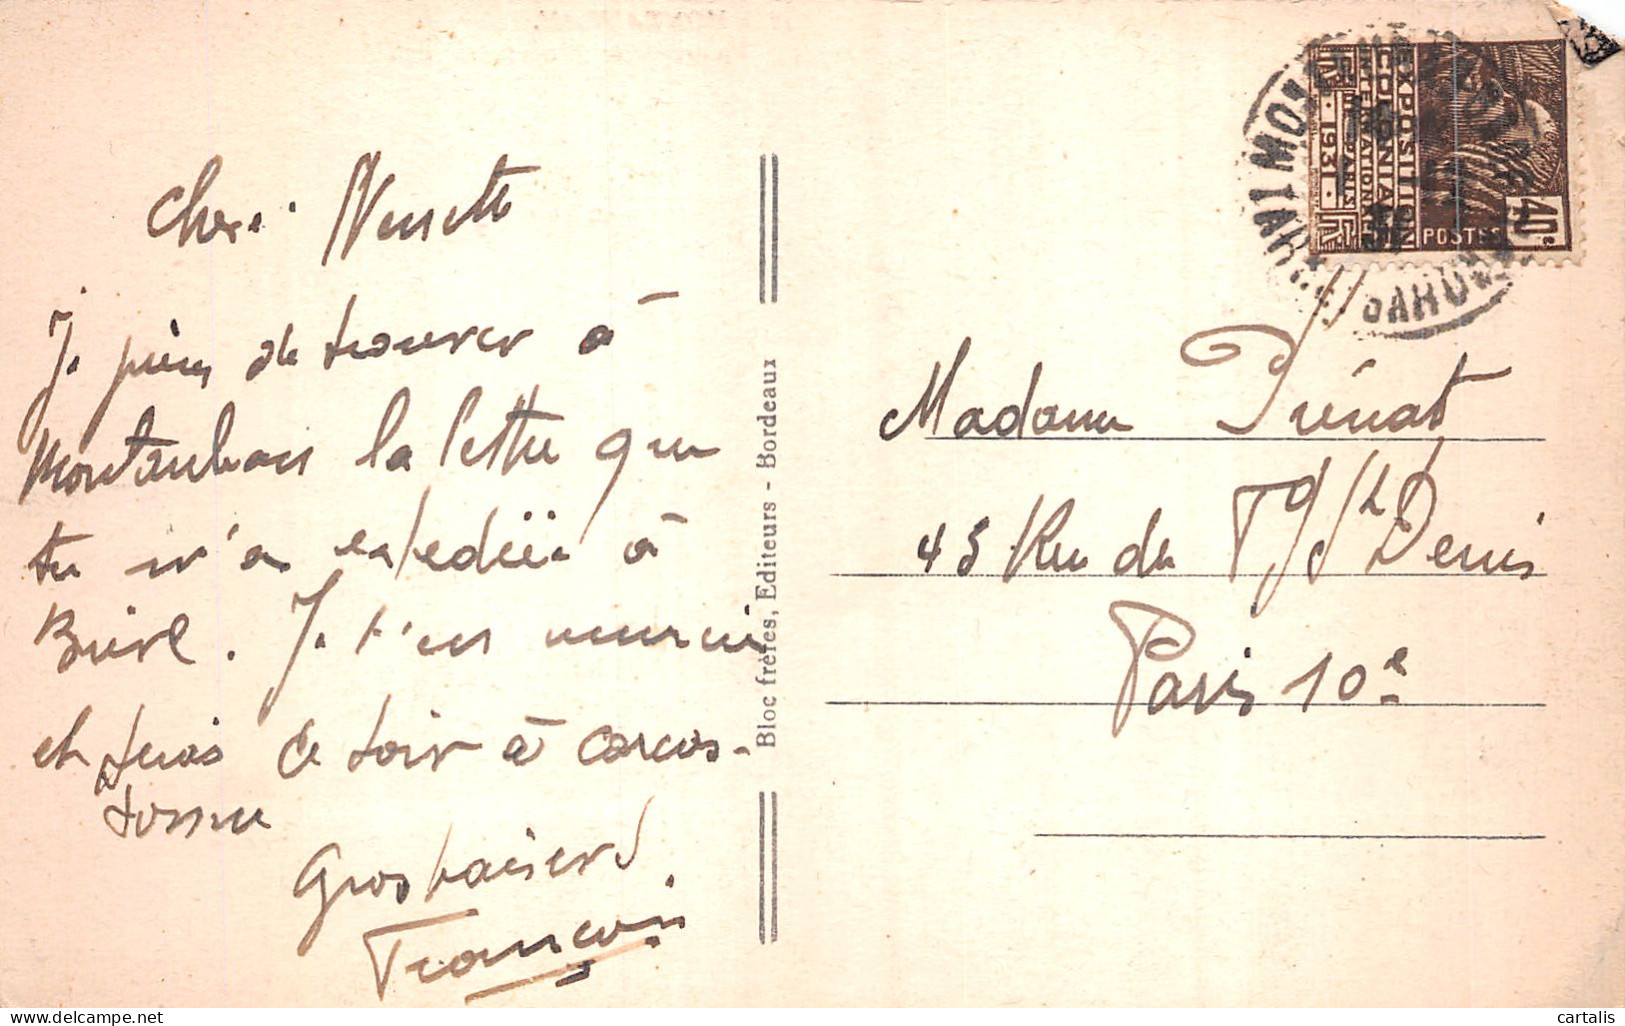 Cher Nenette
Je viens de trouver à
Montauban la lettre que
tu m'a expédiée à
Brive. Je t'en
et serais ce soir à Carcas-
sonne
Gros baisers
François
Bloc frères, Editeurs - Bordeaux
EXPOSITION
COLONIALE
INTERNATIONALE
PARIS
1931
POSTES
40c
GARONNE
Madame Prénat
43 Rue du Fg St Denis
Paris 10e
cartalis
delcampe.net